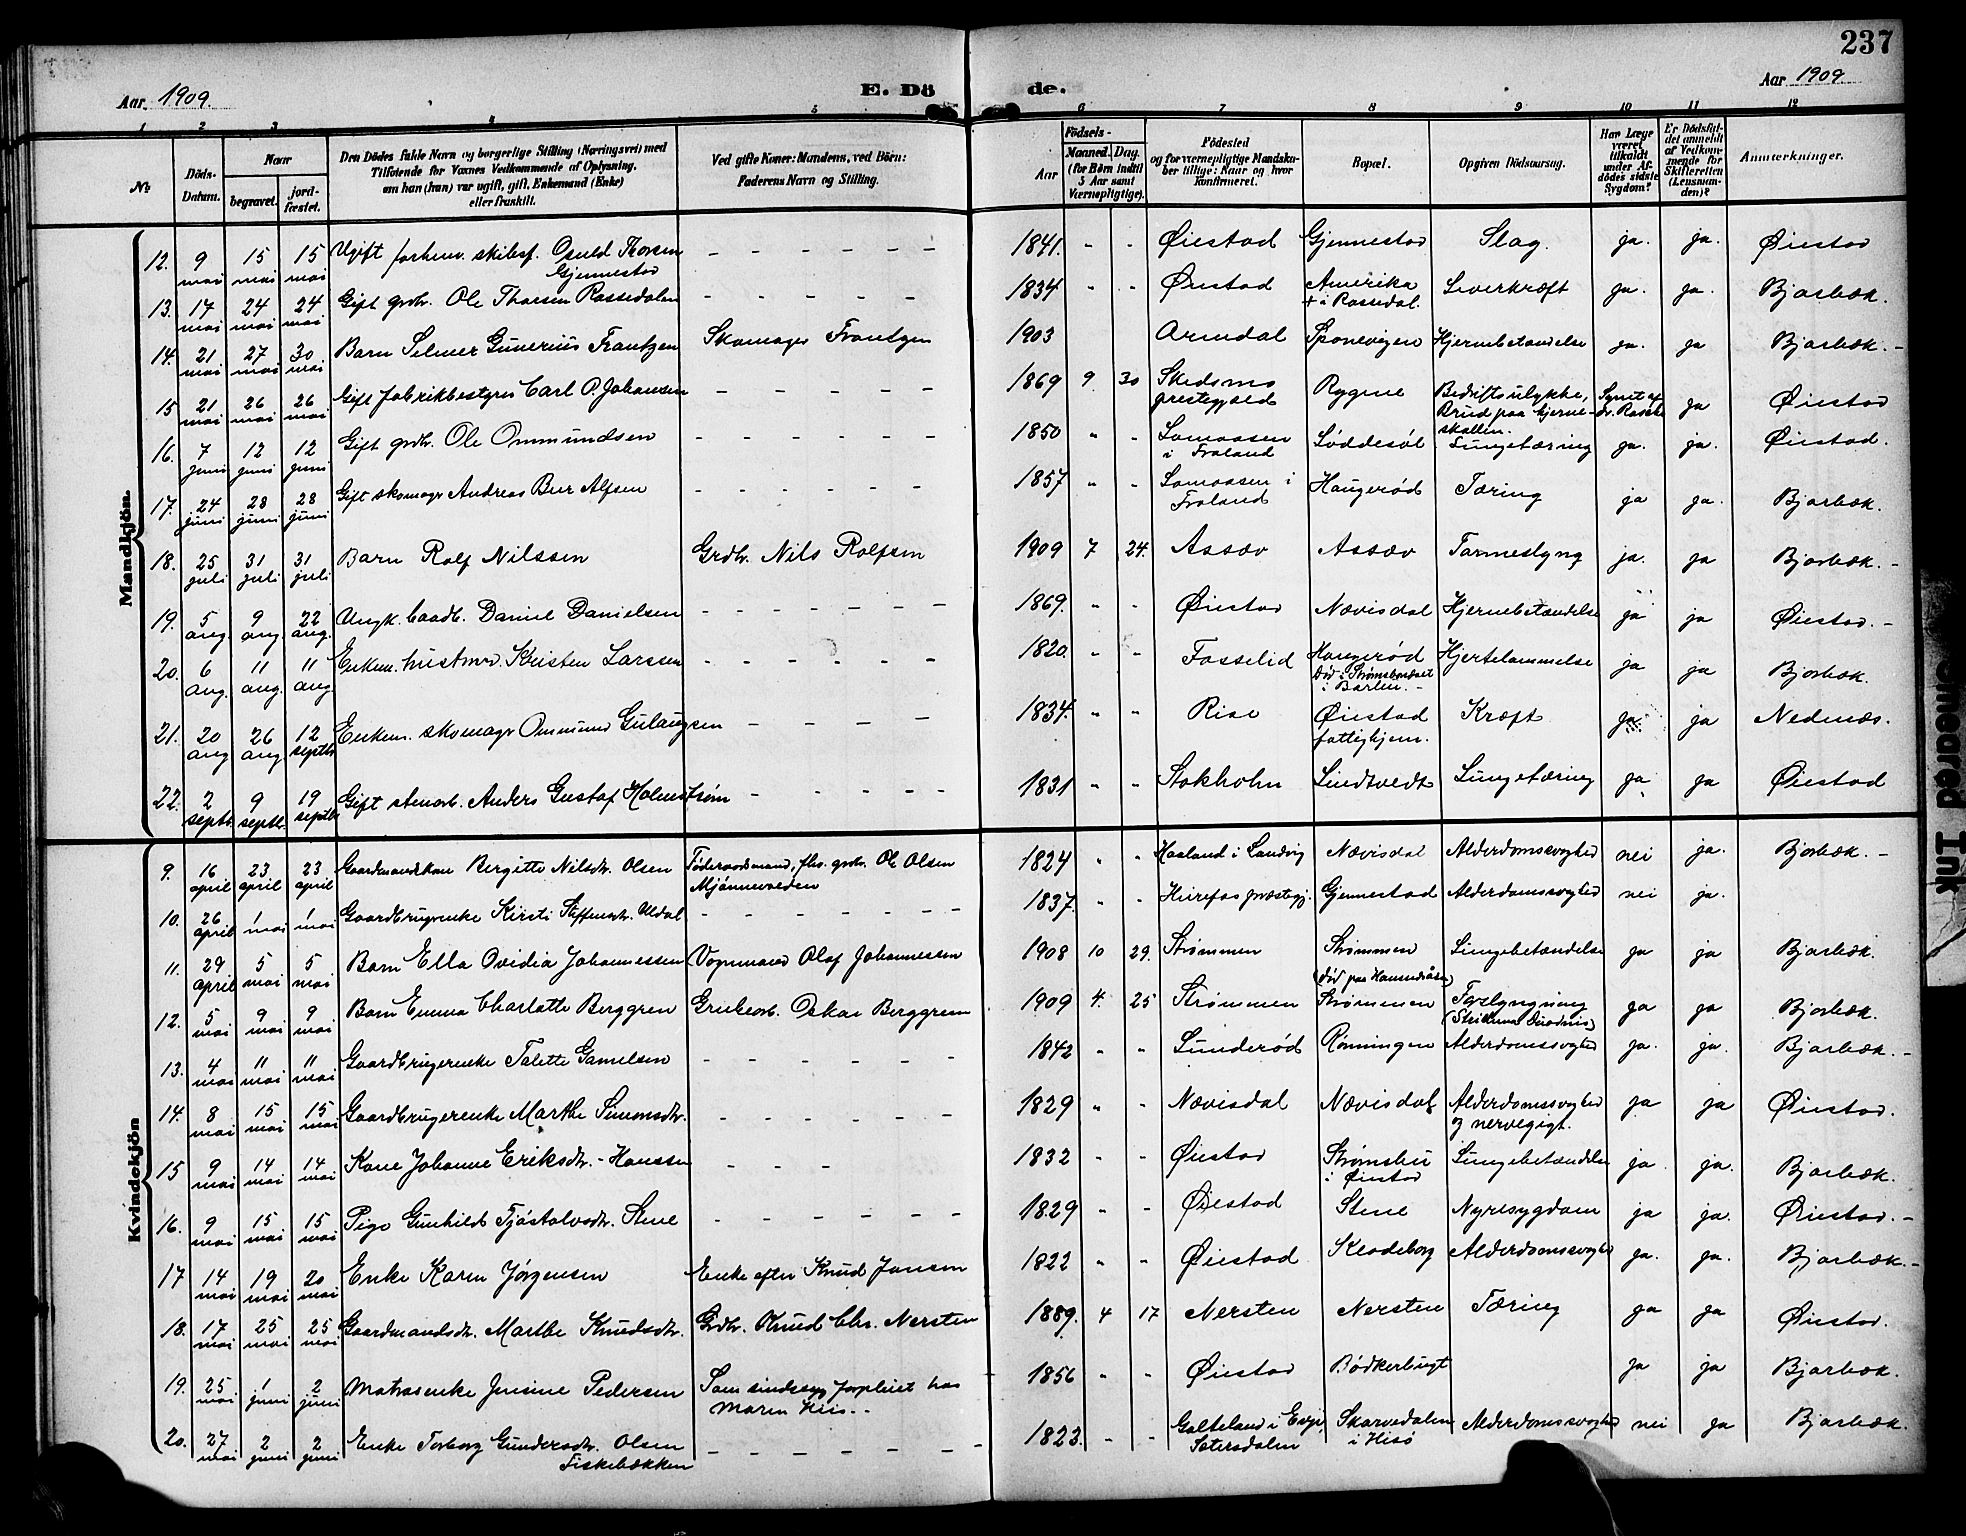 237
Aar 1909.
E. Dö de.
Aar 1909
1 2 3 4 5 6 7 8 9 10 11 12
No
Döds-Datum.
Naar
begravet.
jord-fæstet.
Den Dödes fulde Navn og borgerlige Stilling (Næringsvei) med Tilföiende for Voxnes Vedkommende af Oplysning, om han (hun) var ugift, gift, Enkemand (Enke) eller fraskilt.
Ved gifte Koner: Mandens, ved Börn: Faderens Navn og Stilling.
Födsels-
Aar
Maaned. Dag.
(for Börn indtil 5 Aar samt Værnepligtige).
Födested og for værnepligtige Mandskaber tillige: Naar og hvor konfirmeret.
Bopæl.
Opgiven Dödsaarsag.
Har Læge været tilkaldt under Afdödes sidste Sygdom?
Er Dödsfaldet anmeldt af Vedkommende for Skifteretten (Lensmanden)?
Anmærkninger.
Mandkjön.
12. 9 mai 15 mai 15 mai Ugift forhenv. skibsf. Osuld Thorsen Gjennestad - - - - - - 1841. " " Øiestad Gjennestad Slag. ja. ja. Øiestad
13. 17 mai 24 mai 24 mai Gift grdbr. Ole Tharsen Rossedalen - - - - - - 1834 " " Øiestad Amerika + i Rossedal. Leverkræft ja. ja. Bjorbæk.
14. 21 mai 27 mai 30 mai Barn Selmer Gunerius Frantzen Skomager Frantzen 1903 Arendal Sponevigen Hjernebetændelse ja. ja Bjorbæk. -
15 21 mai 26 mai 26 mai Gift fabrikbestyrer Carl P. Johansen - - - - - - 1869 9 30 Skedsmo prestegjæld Rygene Bedriftsulykke, Brud paa hjerneskallen. Synet af dr. ja Øiestad
16. 7 juni 12 juni 12 juni Gift grdbr. Ole Ommundsen - - - - - - 1850 " " Lomaasen i Froland Løddesøl Lungetæring ja. ja. Øiestad.
17. 24 juni 28 juni 28 juni Gift skomagr Andreas Alfsen - - - - - - 1857 " " Lomaasen i Froland Haugerød Tæring ja ja. Bjorbæk.
18. 25 juli 31 juli 31 juli Barn Rolf Nilssen Grdbr. Nils Rolfsen 1909 7 24. Assæv Assæv Tarmeslyng ja. ja Bjorbæk. -
19. 5 aug. 9 aug. 22 aug. Ungk. baadb. Daniel Danielsen - - - - - - 1869. " " Øiestad Nævisdal Hjernebetændelse ja ja Øiestad. -
20. 6 aug. 11 aug. 11 aug. Enkem. husmd. Kristen Larssen - - - - - - 1820. " " Fosselid Haugerød Død i Strømsbuneset i Barbu. - Hjertelammelse ja ja Bjorbæk.
21. 20 aug 26 aug. 12 septb. Enkem. skomagr Ommund Gulaugsen - - - - - 1834. " " Rise Øiestad fattighjem. Kræft ja. ja Nednæs.
22. 2 septb. 9 septb. 19 septb Gift stenarb. Anders Gustaf Holmstrøm - - - - - 1831 " " Stokholm Lindtvedt Lungetæring ja. ja Øiestad
Kvindekjön
9. 16 april 23 april 23 april Gaardmandskone Bergitte Nilsdtr. Olsen Føderaadsmand, fhv. grdbr. Ole Olsen Mjønnevolden 1824 " " Haaland i Landvig Nævisdal Alderdomssvaghed nei ja. Bjorbæk. -
10. 26 april 1 mai 1 mai Gaardbrugerenke Kirsti Steffensdtr. Uldal - - - - - - 1837. Hirefos præstegj. Gjennestad Alderdomssvaghed nei ja.
11. 29 april 5 mai 5 mai Barn Ella Ovidia Johannessen Vognmand Olaf Johannessen 1908 10 29. Strømmen Strømmen Lungebetændelse ja ja Bjorbæk.
12. 5 mai 9 mai 9 mai Barn Emma Charlotte Berggren Grubearb. Oskar Berggren 1909 4. 25 Strømmen (død paa ) Strømmen ja ja Bjorbæk.
13. 4 mai 11 mai 11 mai Gaardbrugerenke Talette Gamelsen - - - - - - 1842 " " Lunderød Rønningen Alderdomssvaghed ja. ja. Bjorbæk. -
14. 8 mai 15 mai 15 mai Gaardbrugerenke Marthe Simonsdtr. - - - - - - 1829 " " Nævisdal Nævisdal Alderdomssvaghed og nervegigt. ja ja Øiestad.
15 9 mai 14 mai 14 mai Kone Johanne Eriksdtr. - Hanssen - - - 1832 " " Øiestad Strømsbu i Øiestad Lungebetændelse ja ja. Bjorbæk.
16. 9 mai 15 mai 15 mai Pige Gunhild Tjøstolvsdtr. Stene - - - - - - 1829 " " Øiestad Stene Nyresygdom ja ja. Øiestad. -
17 14 mai 19 mai 20 mai Enke Karen Jørgensen Enke efter Knud Jansen 1822 " " Øiestad Klodeborg Alderdomssvaghed ja. ja. Bjorbæk. -
18. 17 mai 25 mai 25 mai Gaardmandsdtr. Marthe Knudsdtr. Grdbr. Knud Chr. Nersten 1889. 4 17 Nersten Nersten Tæring ja ja Øiestad.
19. 25 mai 1 juni 2 juni Matrosenke Jensine Pedersen Som sindssyg forpleiet hos Maren Hiis. - 1856 " " Øiestad Bødkerbugt ja ja Bjorbæk.
20. 27 mai 2 juni 2 juni Enke Torborg Gundersdtr. Olsen Fiskebækken - - - - - - 1823. - - Galteland i Evje, Sætersdalen Skarvedalen i Hisø Alderdomssvaghed nei ja Bjorbæk.